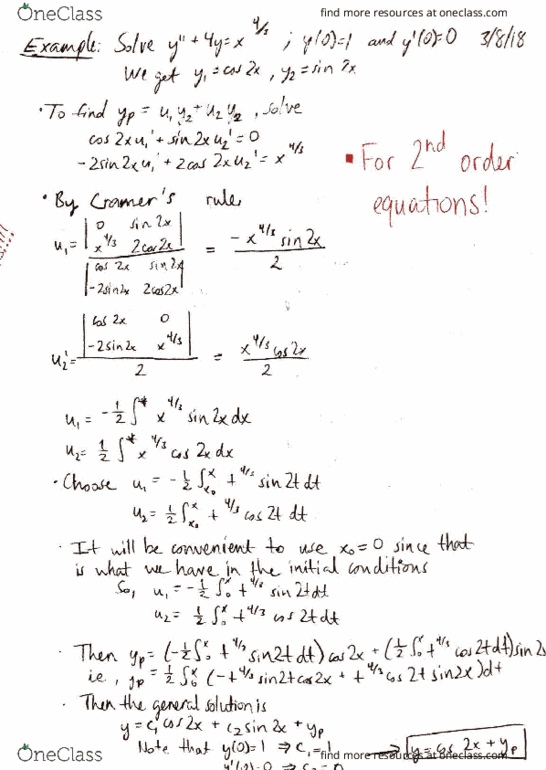 OneClass
find more resources at oneclass.com
Example: Solve y" + 4y = x^4/3 ; y(0)=1 and y'(0)=0 3/8/18
We get y₁ = cos 2x , y₂ = sin 2x
• To find yp = u₁y₂ + u₂y₂ , solve
cos 2x u₁' + sin 2x u₂' = 0
-2sin 2x u₁' + 2cos 2x u₂' = x^4/3
▪ For 2nd order
equations!
• By Cramer's rule,
u₁ = | 0 sin 2x |
| x^4/3 2cos 2x |
| cos 2x sin 2x |
| -2sin2x 2cos2x |
= -x^4/3 sin 2x
2
| cos 2x 0 |
| -2sin 2x x^4/3 |
u₂' = 2
= x^4/3 cos 2x
2
u₁ = -1/2 ∫^* x^4/3 sin 2x dx
u₂ = 1/2 ∫^* x^4/3 cos 2x dx
• Choose u₁ = -1/2 ∫_x₀^x t^4/3 sin 2t dt
u₂ = 1/2 ∫_x₀^x t^4/3 cos 2t dt
• It will be convenient to use x₀=0 since that
is what we have in the initial conditions
So, u₁ = -1/2 ∫_0^x t^4/3 sin 2t dt
u₂ = 1/2 ∫_0^x t^4/3 cos 2t dt
• Then yp = (-1/2 ∫_0^x t^4/3 sin 2t dt) cos 2x + (1/2 ∫_0^x t^4/3 cos 2t dt) sin 2x
i.e., yp = 1/2 ∫_0^x (-t^4/3 sin 2t cos 2x + t^4/3 cos 2t sin 2x) dt
• Then the general solution is
y = c₁ cos 2x + c₂ sin 2x + yp
Note that y(0)=1 ⇒ c₁=1 → y = cos 2x + yp
y'(0)=0 ⇒ c₂ = 0
OneClass
find more resources at oneclass.com